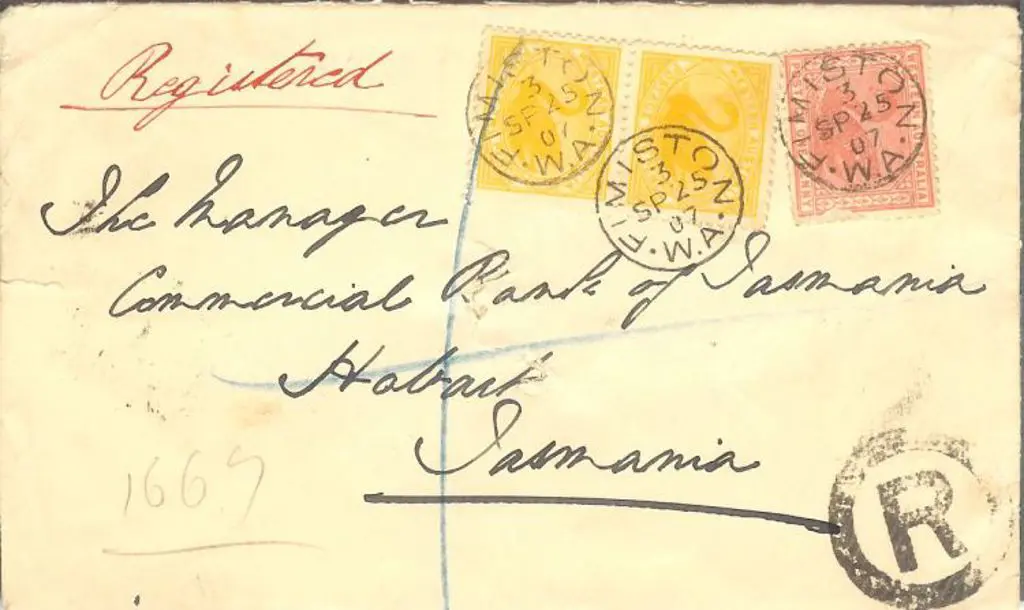 Registered
FIMISTON
3
SP 25
07
W.A.
FIMISTON
3
SP 25
07
W.A.
FIMISTON
3
SP 25
07
W.A.
The Manager
Commercial Bank of Tasmania
Hobart
Tasmania
R